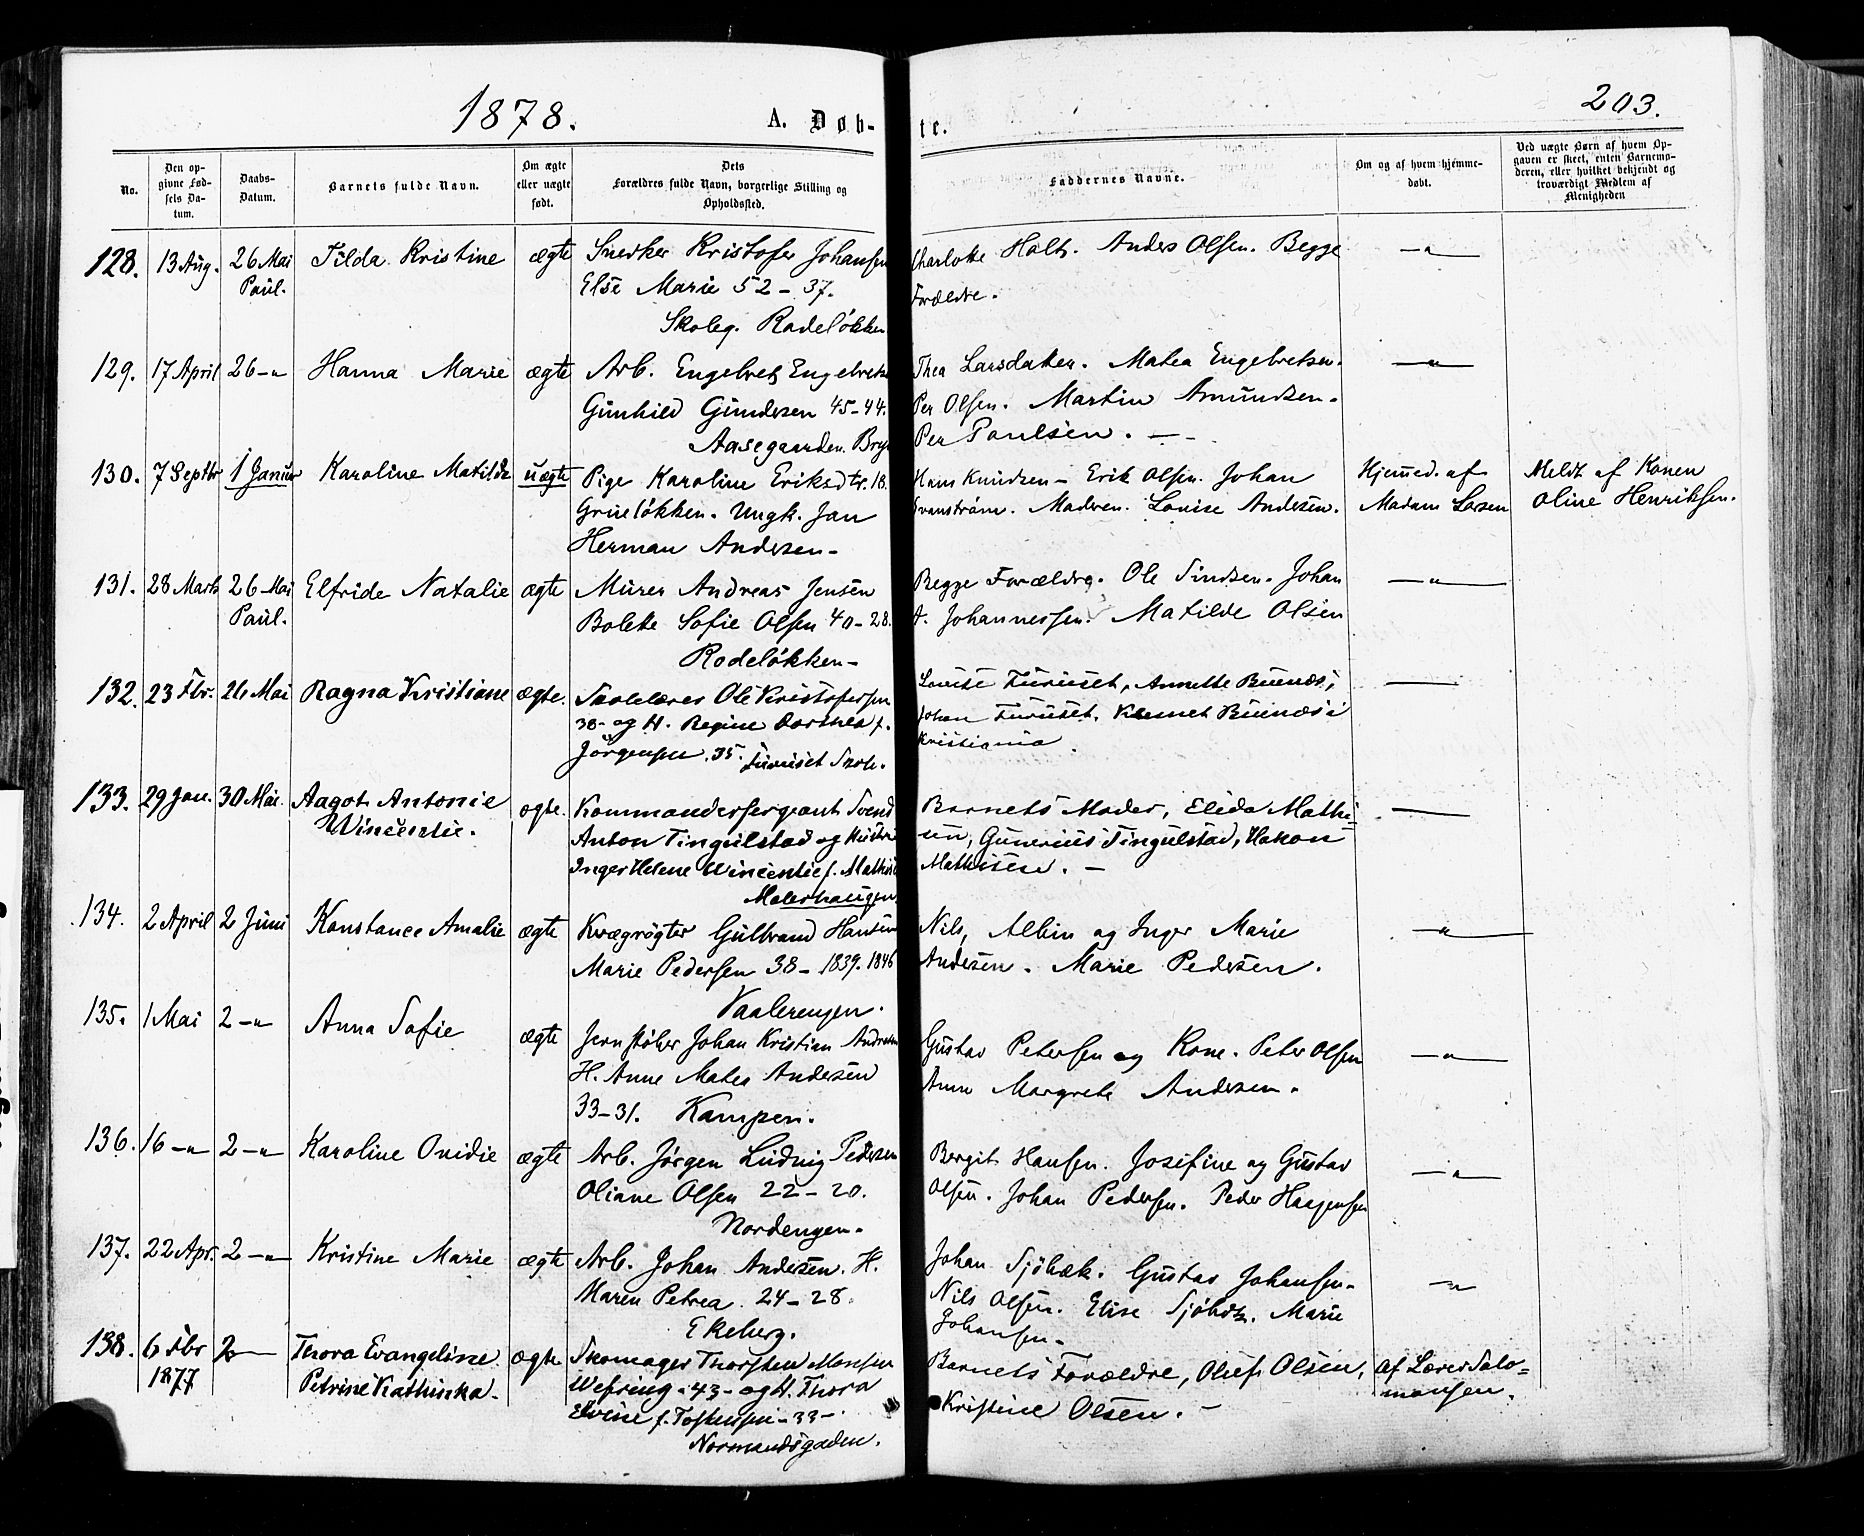 1878. A. Døb- te. 203.
No. Den opgivne Fødsels Datum. Daabs-Datum. Barnets fulde Navn. Om ægte eller uægte født. Dets Forældres fulde Navn, borgerlige Stilling og Opholdssted. Faddernes Navne. Om og af hvem hjemmedøbt. Ved uægte Børn af hvem Opgaven er skeet, enten Barnemoderen, eller hvilket bekjendt og troværdigt Medlem af Menigheden
128. 13 Aug. 26 Mai Tilda Kristine ægte Snedker Kristofer Johansen Charlotte Holt. Anders Olsen. Begge —"—
Paul. Else Marie 52-37. Forældre.
Skoleg. Rodeløkken
129. 17 April 26 -"- Hanna Marie ægte Arb. Engelbret Engelbretsen Thea Larsdatter. Matea Engelbretsen. —"—
Gunhild Gundersen 45-44. Per Olsen. Martin Amundsen.
Aasegaarden. Bryn Per Paulsen. —
130. 7 Septbr 1 Januar Karoline Matilde uægte Pige Karoline Eriksdtr. 18. Hans Knudsen - Erik Olsen. Johan Hjemmed. af Meldt af Konen
Grünløkken. Ungk. Jan Svanstrøm. Moderen. Lovise Andersen. Madam Larsen Oline Henriksen.
Herman Andersen-
131. 28 Marts 26 Mai Elfride Natalie ægte Murer Andreas Jensen Begge Forældre. Ole Sindsen. Johan —"—
Paul. Bolette Sofie Olsen 40-28. A. Johannessen. Matilde Olsen
Rodeløkken-
132. 23 Fbr. 26 Mai Ragna Kristiane ægte. Skolelærer Ole Kristofersen Lovise Furuset, Annette Buenæs, —
38- og H. Regine Dorthea f. Johan Furuset. Kornet Buenæs i
Jørgensen. 35. Furuset Skole. Kristiania.
133. 29 Jan. 30 Mai. Aagot Antonie ægte. Kommandersergeant Svend Barnets Moder, Elida Mathi- —
Wincentie. Anton Tingulstad og Hustru sen, Gunerius Tingulstad, Hakon
Inger Helene Wincentie f. Mathisen Mathisen. —
Malerhaugen
134. 2 April 2 Juni Konstance Amalie ægte Kvægrøgter Gulbrand Hansen Nils, Albin og Inger Marie —"—
Marie Pedersen 38- 1839. 1846 Andersen. Marie Pedersen.
Vaalerengen.
135. 1 Mai 2 -"- Anna Sofie ægte Jernstøber Johan Kristian Andersen Gustav Petersen og Kone. Peter Olsen —"—
H. Anne Matea Andersen Anne Margrete Andersen.
33-31. Kampen.
136. 16 -"- 2 -"- Karoline Ovidie ægte Arb. Jørgen Ludvig Pedersen Bergit Hansen. Josefine og Gustav —"—
Oliane Olsen 22-20. Olsen. Johan Pedersen. Peder Haagensen
Nordengen.
137. 22 Apr. 2 -"- Kristine Marie ægte Arb. Johan Andersen. H. Johan Sjöbæk. Gustav Johansen. —"—
Maren Petrea. 24-28. Nils Olsen. Elise Sjöbæk. Marie
Ekeberg. Johansen-
138. 6 Fbr 2 — Thora Evangeline ægte Skomager Thorsten Monsen Barnets Forældre, Oluf Olsen, af Lærer Salo-
1877 Petrine Kathinka. Wefring - 43 - og H. Thora Kristine Olsen. - monsen.
Elvine f. Tostensen - 33 -
Normandsgaden.